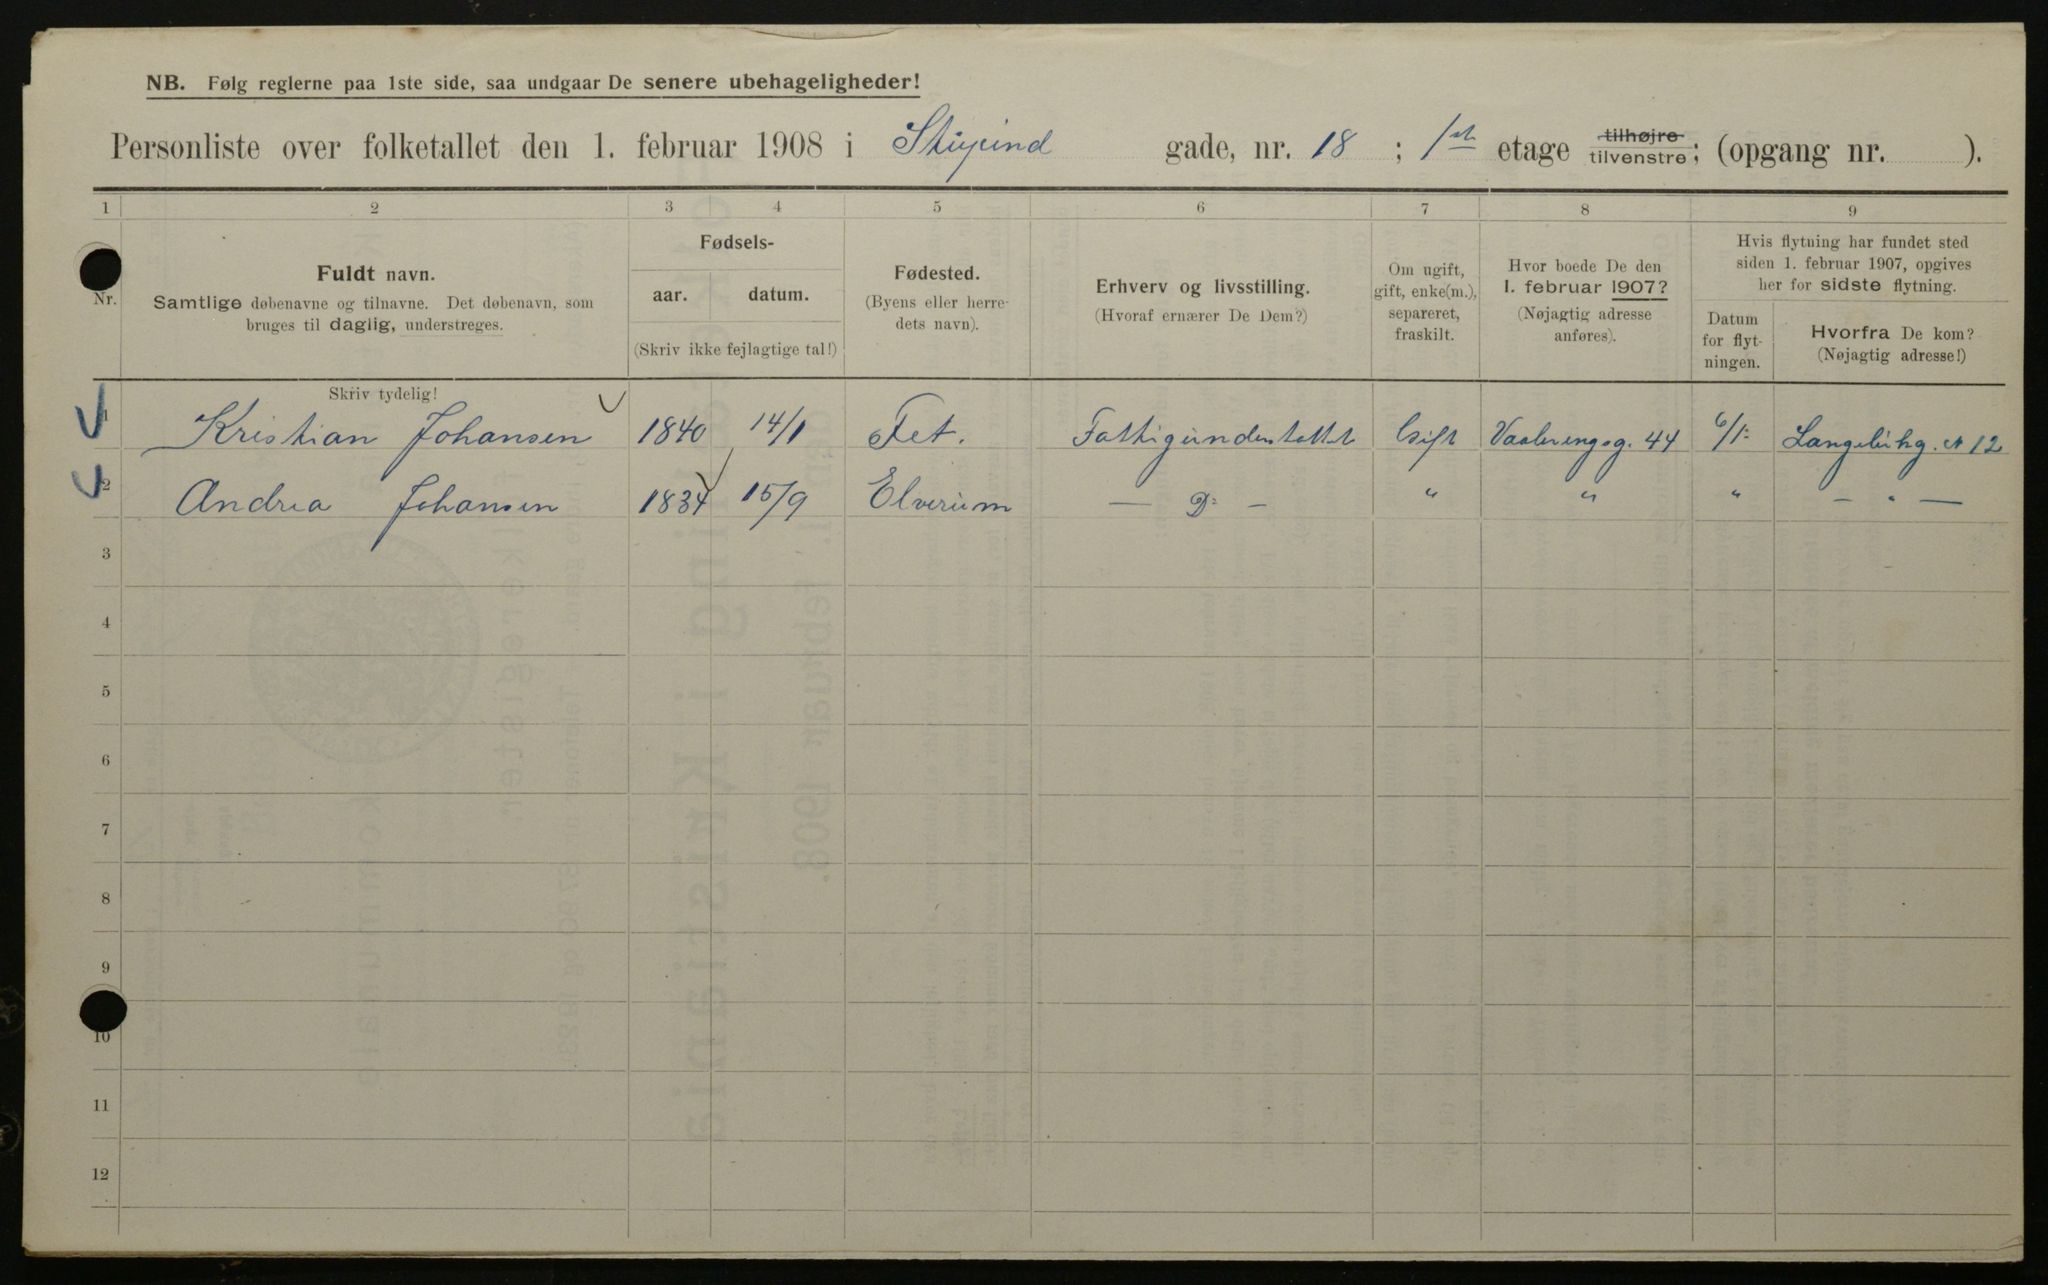 NB. Følg reglerne paa 1ste side, saa undgaar De senere ubehageligheder!
Personliste over folketallet den 1. februar 1908 i gade, nr. 18 ; 1st etage tilhøjre tilvenstre; (opgang nr. ).
1 2 3 4 5 6 7 8 9
Nr.
Fuldt navn.
Samtlige døbenavne og tilnavne. Det døbenavn, som
bruges til daglig, understreges.
Fødsels-
aar. datum.
(Skriv ikke fejlagtige tal!)
Fødested.
(Byens eller herre-
dets navn).
Erhverv og livsstilling.
(Hvoraf ernærer De Dem?)
Om ugift,
gift, enke(m.),
separeret,
fraskilt.
Hvor boede De den
1. februar 1907?
(Nøjagtig adresse
anføres).
Hvis flytning har fundet sted
siden 1. februar 1907, opgives
her for sidste flytning.
Datum
for flyt-
ningen.
Hvorfra De kom?
(Nøjagtig adresse!)
Skriv tydelig!
1 Kristian Johansen 1840 14/1 Fet. Fattigunderstøttet Gift Vaalerengsg. 44 6/1 12
2 Andrea Johansen 1834 15/9 Elverum — D: — " " " — " —
3
4
5
6
7
8
9
10
11
12